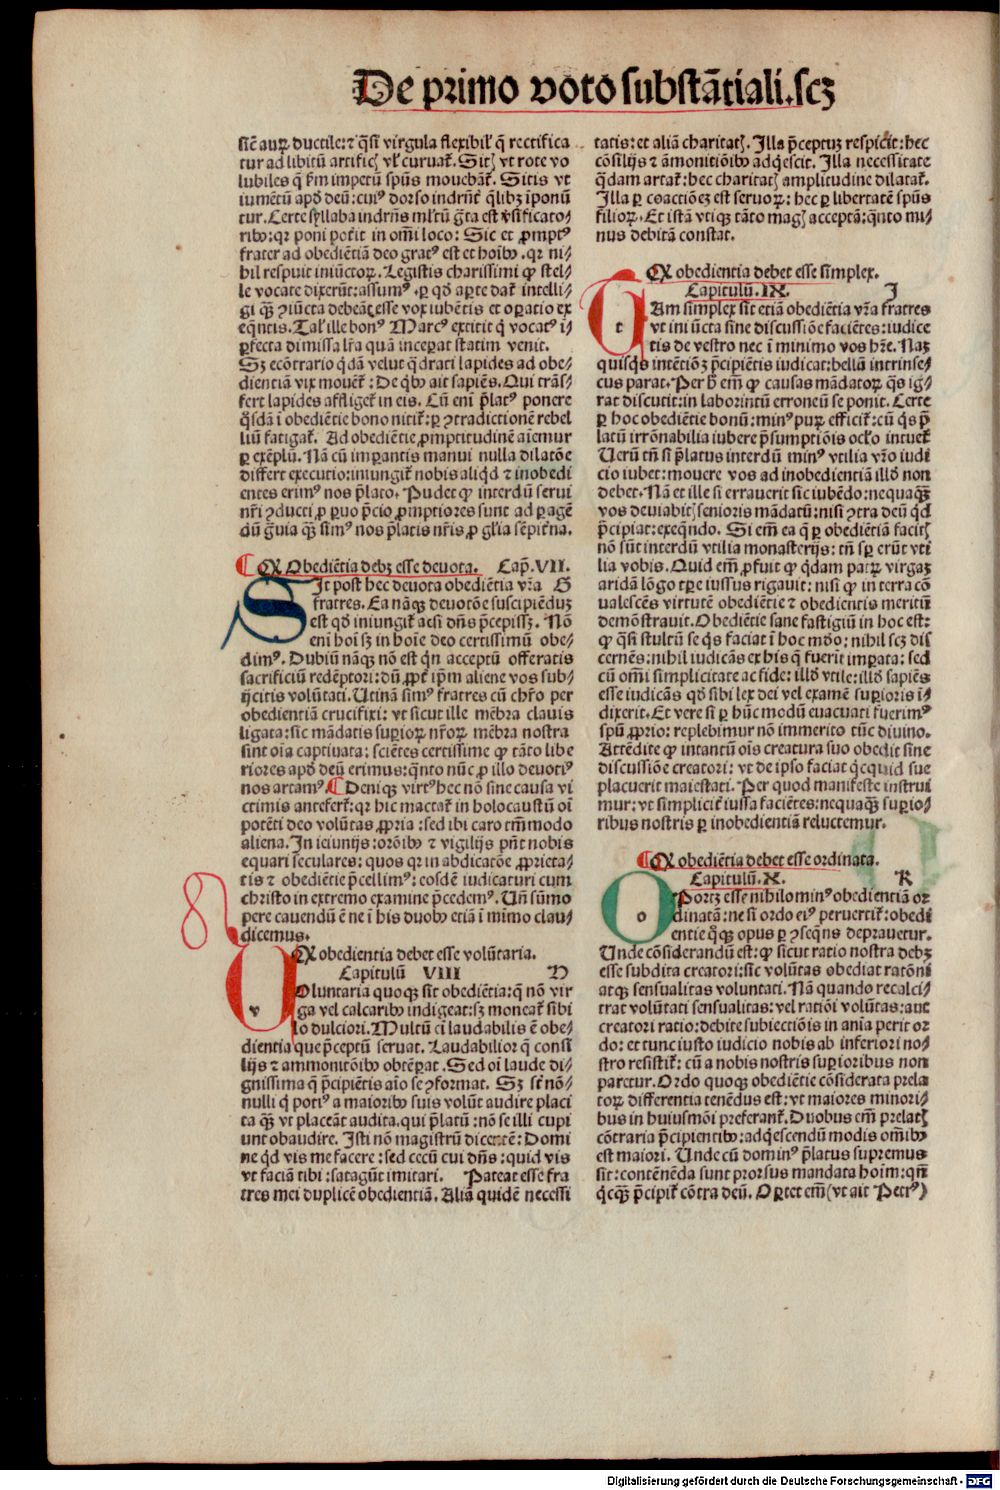 De primo voto substātiali.scꝫ
siēt aurū ductile: ⁊ q̄si virgula flexibil' q̄ rectifica
tur ad libitū artificꝭ vl' curuat᷑. Sitꝭ vt rote vo
lubiles q̄ ẜm impetū spūs mouebāt᷑. Sitis vt
iumētū apd̓ deū: cui⁹ dorso indrn̄t᷑ q̄libꝫ īponū
tur. Certe syllaba indrn̄s ml'tū grā̄ta est v̓sificato⸗
ribꝰ: qꝛ poni potēit in omī loco: Sic et ꝓmpt⁹
frater ad obediētiā deo grat⁹ est et hoībꝰ. qꝛ ni⸗
hil respuit iniūctoꝝ. Legistis charissimi ꝙ stel⸗
le vocate dixerūt: assum⁹. ꝑ qd̓ aꝑte dat᷑ intelli⸗
gi qꝫ ꝯiūcta debeāt esse vox iubētis et oꝑatio ex
eqn̄tis. Tal' ille bon⁹ Marc⁹ extitit q̇ vocat⁹ ī⸗
ꝑfecta dimissa lr̄a quā inceperat statim venit.
Sꝫ ecōtrario q̇dā velut q̄drati lapides ad obe⸗
dientiā vix mouēt᷑: De qꝰ ait sapiēs. Qui trās⸗
fert lapides affliget᷑ in eis. Cū enī p̄lat⁹ ponere
q̇sdā ī obediētie bono nitit᷑: ꝑ ꝯtradictionē rebel
liū fatigat᷑. Ad obediētie ꝓmptitudinē aīemur
ꝑ exēplū. Nā cū imꝑantis manui nulla dilatōe
differt executio: iniungit᷑ nobis aliqd̓ ⁊ inobedi
entes erim⁹ nos p̄lato. Pudet ꝙ interdū serui
nr̄i ꝯducti ꝓ ꝑuo p̄cio ꝓmptiores sunt ad ꝑagē
dū grauia qꝫ sim⁹ nos p̄latis nr̄is ꝓ gl'ia sēpit̓na.
¶ Qꝙ Obediētia debꝫ esse deuota. Cap̄. VII.
SIt post hec deuota obediētia vr̄a G
fratres. Ea nāqꝫ deuotōe suscipiēduꝫ
est qd̓ iniungit᷑ acsi dn̄s p̄cepissꝫ. Nō
enī hoī sꝫ in hoīe deo certissimū obe⸗
dim⁹. Dubiū nāqꝫ nō est qn̄ acceptū offeratis
sacrificiū redēptori: dū ꝓpt̓ ip̄m aliene vos sub⸗
ijcitis volūtati. Utinā sim⁹ fratres cū chr̄o per
obedientiā crucifixi: vt sicut ille mēbra clauis
ligata: sic mādatis suꝑioꝝ nr̄oꝝ mēbra nostra
sint oīa captiuata: sciētes certissime ꝙ tāto libe
riores apd̓ deū erimus: qn̄to nūc ꝓ illo deuoti⁹
nos artam⁹. ¶ Deniqꝫ virt⁹ hec nō sine causa vi
ctimis antefert᷑: qꝛ hic mactat᷑ in holocaustū oī
potēti deo volūtas ꝓpria: sed ibi caro tm̄modo
aliena. In ieiunijs: orōibꝰ ⁊ vigilijs pn̄t nobis
equari seculares: quos qꝛ in abdicatōe ꝓprieta⸗
tis ⁊ obediētie p̄cellim⁹: eosdē iudicaturi cum
christo in extremo examine p̄cedem⁹. Un̄ sūmo
pere cauendū ē ne ī his duobꝰ etiā ī mimo clau⸗
dicemus.
Qꝙ obedientia debet esse volūtaria.
Capitulū VIII H
VOluntaria quoqꝫ sit obediētia: q̄ nō vir
ga vel calcaribꝰ indigeat: sꝫ moneat᷑ sibi
lo dulciori. Multū eī laudabilis ē obe⸗
dientia que p̄ceptū seruat. Laudabilior q̄ consi
lijs ⁊ ammonitōibꝰ obtēꝑat. Sed oī laude di⸗
gnissima q̄ p̄cipiētis aīo se ꝯformat. Sꝫ st̄ nō⸗
nulli q̇ poti⁹ a maioribꝰ suis volūt audire placi
ta qꝫ vt placeāt audita. qui p̄latū: nō se illi cupi
unt obaudire. Isti nō magistrū dicerētē: Domi
ne qd̓ vis me facere: sed cecū cui dn̄s: quid vis
vt faciā tibi: satagūt imitari. Pateat esse fra
tres mei duplicē obedientiā. Aliā quidē necessi
tatis: et aliā charitatꝭ. Illa p̄ceptuꝫ respicit: hec
cōsilijs ⁊ āmonitiōibꝰ adq̇escit. Illa necessitate
q̄dam artat᷑: hec charitatꝭ amplitudine dilatat᷑.
Illa ꝑ coactiōeꝫ est seruoꝝ: hec ꝑ libertatē spūs
filioꝝ. Et istā vtiqꝫ tāto magꝭ acceptā: qn̄to mi⸗
nus debitā constat.
Qꝙ obedientia debet esse simplex.
Capitulū. IX. I
TAm simplex sit etiā obediētia vr̄a fratres
vt iniūcta sine discussiōe faciētes: iudice
tis de vestro nec ī minimo vos hr̄e. Naꝫ
quisqs intētiōꝫ p̄cipiētis iudicat: bellū intrinse⸗
cus parat. Per ħ em̄ ꝙ causas mādatoꝝ q̇s ig⸗
rat discutit: in laborintū erroneū se ponit. Certe
ꝑ hoc obediētie bonū: min⁹ puꝝ efficit᷑: cū q̇s p̄
latū irrōnabilia iubere p̄sumptiōis ocl'o intuet᷑
Uerū tn̄ si p̄latus interdū min⁹ vtilia vr̄o iudi
cio iubet: mouere vos ad inobedientiā illd̓ non
debet. Nā et ille si errauerit sic iubēdo: nequaqꝫ
vos deuiabitꝭ senioris mādatū: nisi ꝯtra deū qd̓
p̄cipiat: exeqn̄do. Si em̄ ea q̄ ꝑ obediētiā facitꝭ
nō sūt interdū vtilia monasterijs: tn̄ sꝑ erūt vti
lia vobis. Quid em̄ ꝓfuit ꝙ q̇dam patꝝ virgaꝫ
aridā lōgo tꝑe iussus rigauit: nisi ꝙ in terra cō
ualescēs virtutē obediētie ⁊ obedientis meritū
demōstrauit. Obediētie sane fastigiū in hoc est:
ꝙ q̄si stultū se q̇s faciat ī hoc mōo: nihil scꝫ dis
cernēs: nihil iudicās ex his q̄ fuerīt imꝑata: sed
cū omī simplicitate ac fide: illd̓ vtile: illd̓ sapiēs
esse iudicās qd̓ sibi lex dei vel examē suꝑioris ī⸗
dixerit. Et vere si ꝑ hūc modū euacuati fuerim⁹
spū ꝓprio: replebimur nō immerito tūc diuino.
Attēdite ꝙ intantū oīs creatura suo obedit sine
discussiōe creatori: vt de ipso faciat q̇cquid sue
placuerit maiestati. Per quod manifeste instrui
mur: vt simplicit̓ iussa faciētes: nequaqꝫ suꝑio⸗
ribus nostris ꝑ inobedientiā reluctemur.
¶ Qꝙ obediētia debet esse ordinata.
Capitulū. X. K
OPortꝫ esse nihilomin⁹ obedientiā or
dinatā: ne si ordo ei⁹ peruertit᷑: obedi
entie q̊qꝫ opus ꝑ ꝯseqn̄s deprauetur.
Unde cōsiderandū est: ꝙ sicut ratio nostra debꝫ
esse subdita creatori: sic volūtas obediat ratōni
atqꝫ sensualitas voluntati. Nā quando recalci⸗
trat volūtati sensualitas: vel ratiōi volūtas: aut
creatori ratio: debite subiectiōis in anīa perit or
do: et tunc iusto iudicio nobis ab inferiori no⸗
stro resistit᷑: cū a nobis nostris suꝑioribus non
paretur. Ordo quoqꝫ obediētie cōsiderata prela
toꝝ differentia tenēdus est: vt maiores minori⸗
bus in huiusmōi preferant᷑. Duobus em̄ prelatꝭ
cōtraria p̄cipientibꝰ: adq̇escendū modis om̄ibꝰ
est maiori. Unde cū domin⁹ p̄latus supremus
sit: contēnēda sunt prorsus mandata hoīm: qn̄
q̇cqꝫ p̄cipit᷑ cōtra deū. Oꝑtet em̄ (vt ait Petr⁹)
Digitalisierung gefördert durch die Deutsche Forschungsgemeinschaft - DFG